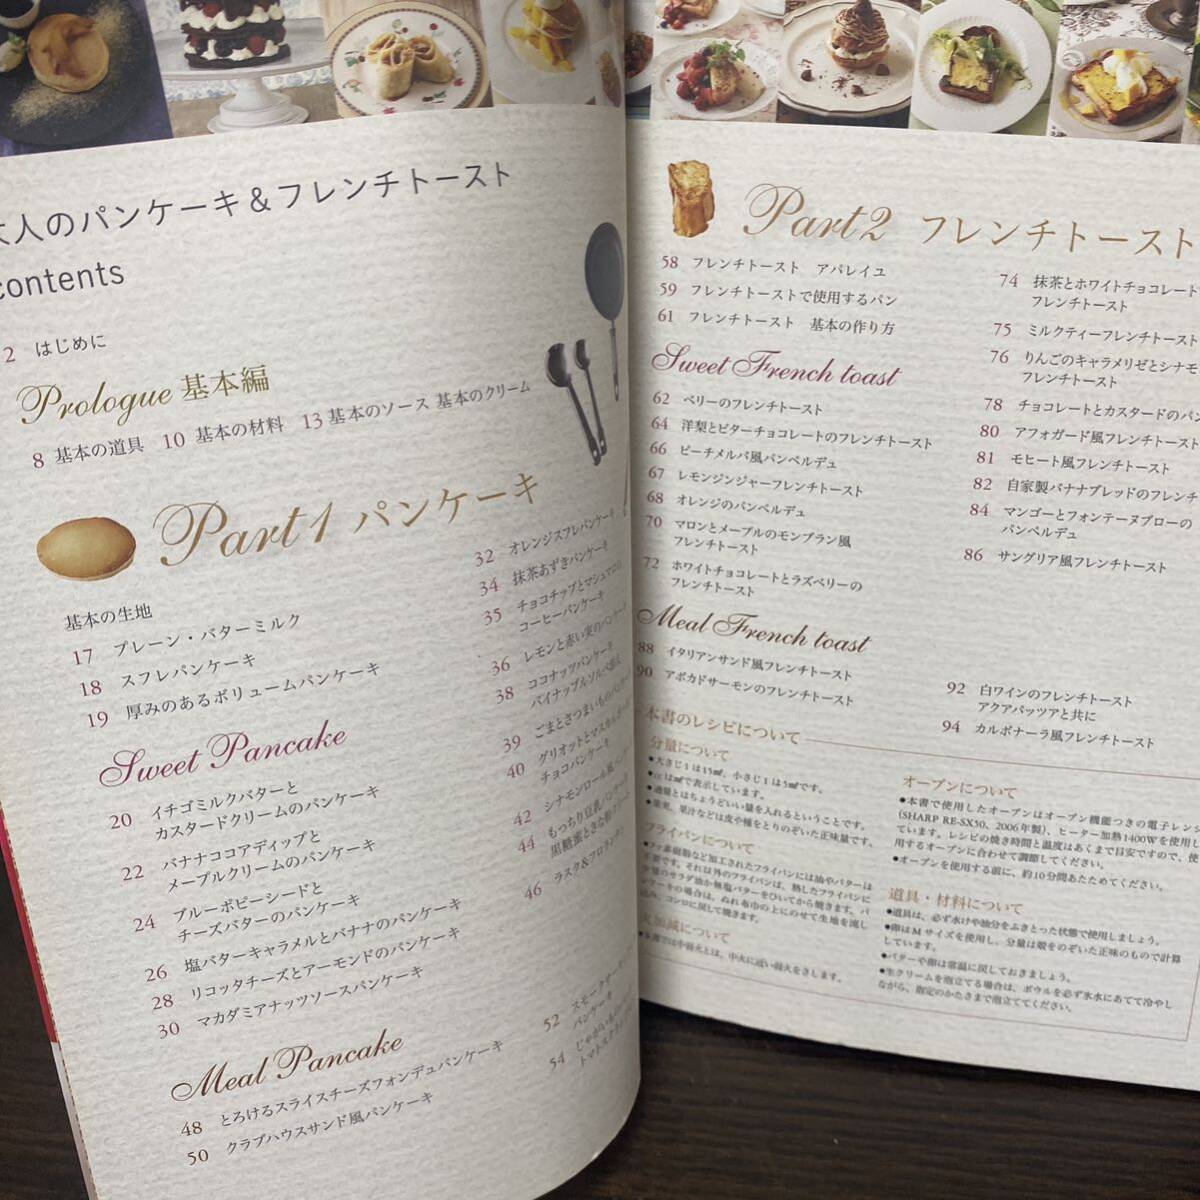 大人のパンケーキ＆フレンチトースト
contents
2 はじめに
Prologue 基本編
8 基本の道具 10 基本の材料 13 基本のソース 基本のクリーム
Part1 パンケーキ
基本の生地
17 プレーン・バターミルク
18 スフレパンケーキ
19 厚みのあるボリュームパンケーキ
Sweet Pancake
20 イチゴミルクバターと
カスタードクリームのパンケーキ
22 バナナココアディップと
メープルクリームのパンケーキ
24 ブルーポピーシードと
チーズバターのパンケーキ
26 塩バターキャラメルとバナナのパンケーキ
28 リコッタチーズとアーモンドのパンケーキ
30 マカダミアナッツソースパンケーキ
32 オレンジスフレパンケーキ
34 抹茶あずきパンケーキ
35 チョコチップとマシュマロの
コーヒーパンケーキ
36 レモンと赤い実のパンケーキ
38 ココナッツパンケーキ
パイナップルソルベ添え
39 ごまとさつまいものパンケーキ
40 グリオットとマスカルポーネの
チョコパンケーキ
42 シナモンロール風パンケーキ
44 もっちり豆乳パンケーキ
黒糖蜜ときな粉クリーム
46 ラスク&フロランタン
Meal Pancake
48 とろけるスライスチーズフォンデュパンケーキ
50 クラブハウスサンド風パンケーキ
52 スモークサーモン
パンケーキ
54 じゃがいもパン
トマト
Part2 フレンチトースト
58 フレンチトースト アパレイユ
59 フレンチトーストで使用するパン
61 フレンチトースト 基本の作り方
Sweet French toast
62 ベリーのフレンチトースト
64 洋梨とビターチョコレートのフレンチトースト
66 ピーチメルバ風パンペルデュ
67 レモンジンジャーフレンチトースト
68 オレンジのパンペルデュ
70 マロンとメープルのモンブラン風
フレンチトースト
72 ホワイトチョコレートとラズベリーの
フレンチトースト
74 抹茶とホワイトチョコレート
フレンチトースト
75 ミルクティーフレンチトースト
76 りんごのキャラメリゼとシナモ
フレンチトースト
78 チョコレートとカスタードのパン
80 アフォガード風フレンチトースト
81 モヒート風フレンチトースト
82 自家製バナナブレッドのフレンチ
84 マンゴーとフォンテーヌブローの
パンペルデュ
86 サングリア風フレンチトースト
Meal French toast
88 イタリアンサンド風フレンチトースト
90 アボカドサーモンのフレンチトースト
92 白ワインのフレンチトースト
アクアパッツアと共に
94 カルボナーラ風フレンチトースト
本書のレシピについて
分量について
●大さじ1は15㎖、小さじ1は5㎖です。
●ccは㎖で表示しています。
●適量とはちょうどいい量を入れるということです。
●葉菜、果汁などは皮や種をとりのぞいた正味量です。
フライパンについて
●フッ素樹脂など加工されたフライパンには油やバターは
不要です。それ以外のフライパンは、熱したフライパンに
少量のサラダ油か無塩バターをひいてから焼きます。パ
ンケーキの場合は、ぬれ布巾の上にのせて生地を流し
込み、コンロに戻して焼きます。
火加減について
●本書では中弱火とは、中火に近い弱火をさします。
オーブンについて
●本書で使用したオーブンはオーブン機能つきの電子レン
(SHARP RE-SX50、2006年製)、ヒーター加熱1400Wを使用し
ています。レシピの焼き時間と温度はあくまで目安ですので、使
用するオーブンに合わせて調節してください。
●オーブンを使用する前に、約10分間あたためてください。
道具・材料について
●道具は、必ず水けや油分をふきとった状態で使用しましょう。
●卵はMサイズを使用し、分量は殻をのぞいた正味のもので計算
しています。
●バターや卵は常温に戻しておきましょう。
●生クリームを泡立てる場合は、ボウルを必ず氷水にあてて冷やし
ながら、指定のかたさまで泡立ててください。